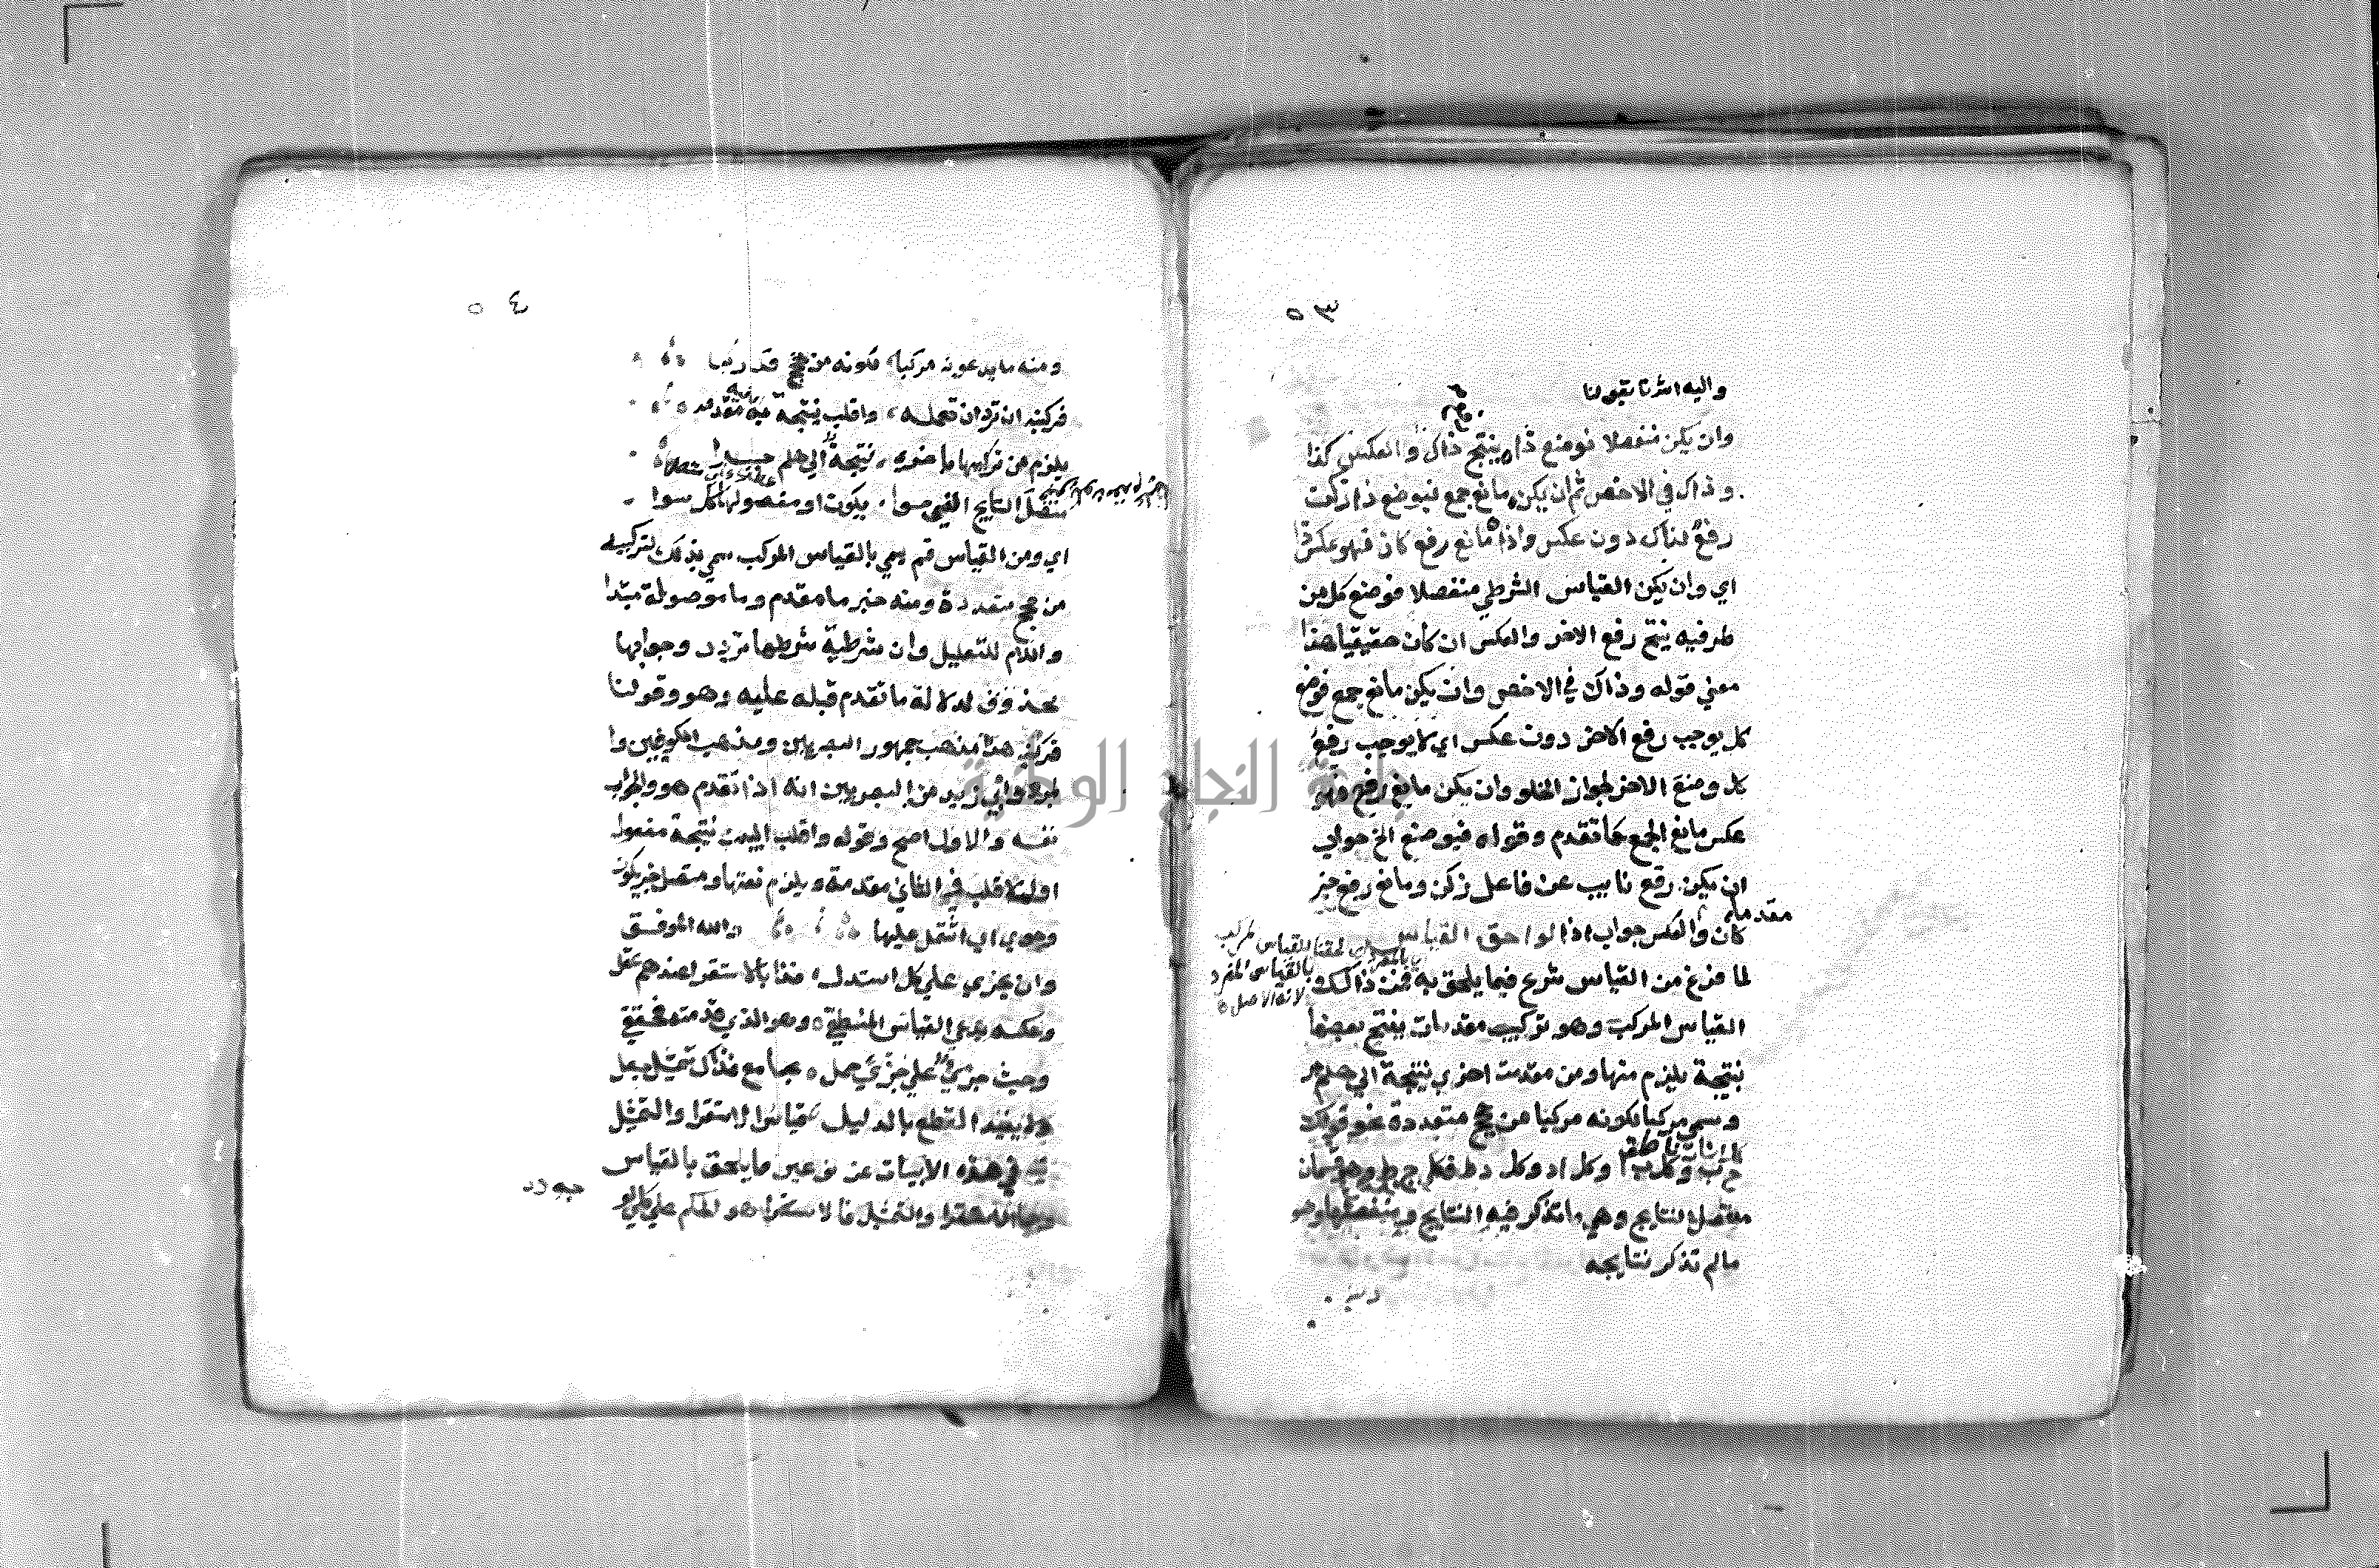 ٥٣
واليه اشرنا بقولنا
وان يكن منفصلا فوضع ذا ينتج رفع ذاك والعكس كذا
وذاك في الاخص ثم ان يكن مانع جمع فبوضع ذا زكن
رفع لذاك دون عكس واذا مانع رفع كان فهو عكس ذا
اي وان يكن القياس الشرطي منفصلا فوضع كل من
طرفيه ينتج رفع الاخر والعكس ان كان حقيقيا هذا
معني قوله وذاك في الاخص وان يكن مانع جمع فوضع
كل يوجب رفع الاخر دون عكس اي لا يوجب رفع
كل وضع الاخر لجواز الخلو وان يكن مانع رفع فهو
عكس مانع الجمع كما تقدم وقوله فبوضع الخ جواب
ان يكن رفع نايب عن فاعل زكن ومانع رفع خبر
كان مقدما والعكس جواب اذا لواحق القياس
لما فرغ من القياس شرع فيما يلحق به فمن ذالك
القياس المركب وهو تركيب مقدمات ينتج بعضها
نتيجة يلزم منها ومن مقدمة اخري نتيجة الي هلم جر
وسمي مركبا لكونه مركبا من حجج متعددة نحو قولك
كل ج ب وكل ب ا وكل ا د وكل د ط فكل ج ط وهو قسمان
متصل النتايج وهي ما تذكر فيه النتايج ومنفصلها وهو
مالم تذكر نتايجه
بالقياس المركب
بالقياس المفرد
لانه الاصل
٥٤
ومنه ما يدعونه مركبا لكونه من حجج قد ركبا
فركبنه ان ترد ان تعمله واقلب نتيجة به مقدمه
يلزم من تركيبها باخري نتيجة الي هلم جرا
متصل النتايج الذي حوا يكون او مفصولها كل سوا
اي ومن القياس قسم يسمي بالقياس المركب سمي بذلك لتركيبه
من حجج متعددة ومنه خبر ما مقدم وما موصولة مبتدا
واللام للتعليل وان شرطية شرطها ترد وجوابها
محذوف لدلالة ما تقدم قبله عليه وهو قولنا
فركبنه هذا مذهب جمهور البصريين ومذهب الكوفيين وا
لمبرد وابي زيد من البصريين انه اذا تقدم هو والجواب
نفسه والاول اصح وقوله واقلب البيت نتيجة مفعول
اول لاقلب في الثاني مقدمة ويلزم نعتها ومتصل خبر يكون
وحوي اي اشتمل عليها والله الموفق
وان بجزي علي كل استدل فذا بالاستقرا عندهم عقل
وعكسه يدعي القياس المنطقي وهو الذي قدمته فحقق
وحيث جزي علي جزي حمل لجامع فذاك تمثيل جعل
ولا يفيد القطع بالدليل قياس الاستقرا والتمثيل
في هذه الابيات عن نوعين مما يلحق بالقياس
وهما الاستقرا والتمثيل فالاستقرا هو الحكم علي كلي لو
جوده